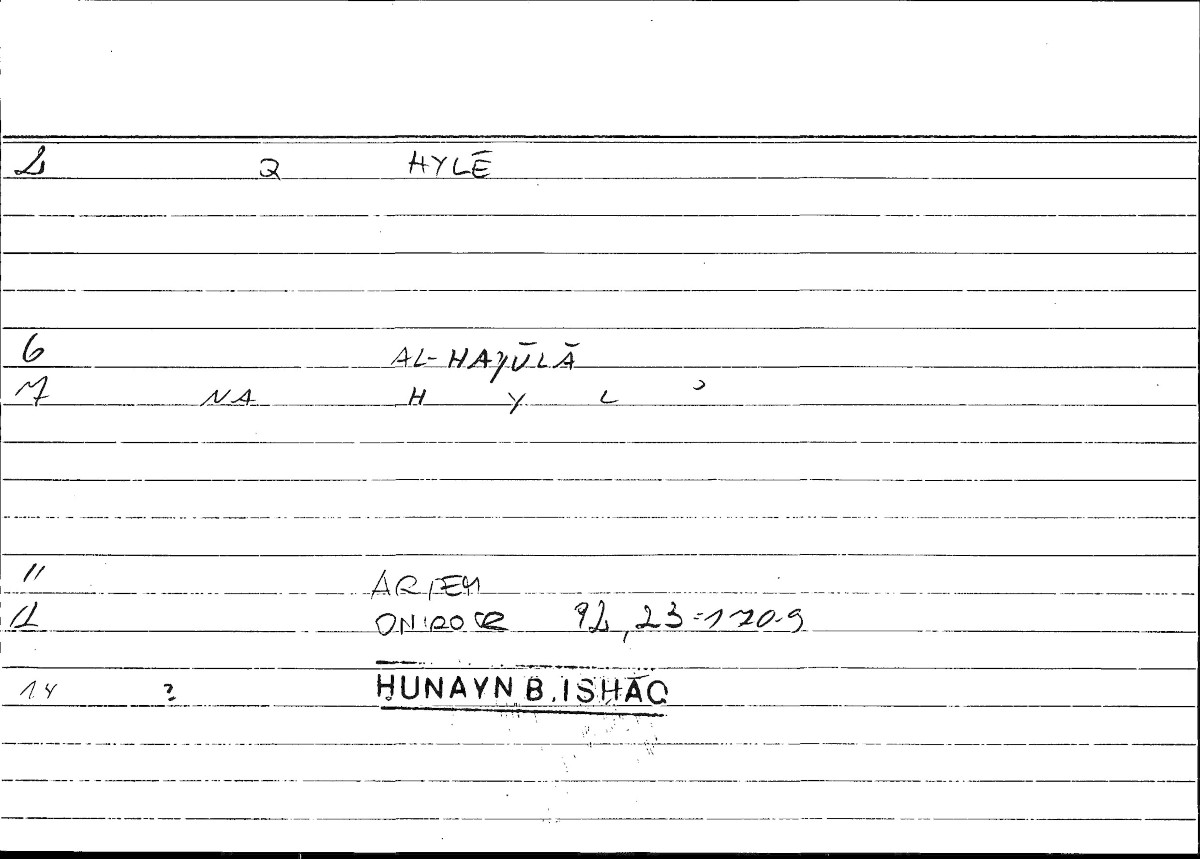 2 Q HYLĒ
6 AL-HAYŪLĀ
7 NA H Y L ʾ
11 ARTEM
12 ONIROCR 92,23=170.9
14 ? ḤUNAYN B. ISḤĀQ